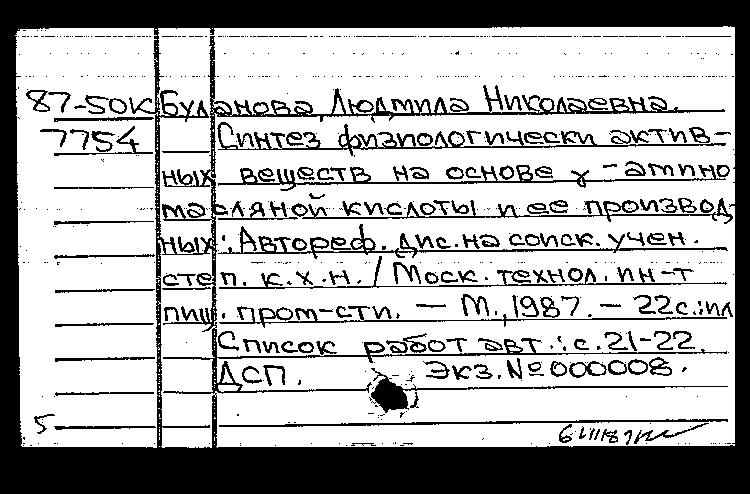 87-50К Буланова, Людмила Николаевна.
7754 Синтез физиологически актив-
ных веществ на основе γ-амино
масляной кислоты и ее производ-
ных: Автореф. дис. на соиск. учен.
степ. к.х.н. / Моск. технол. ин-т
пищ. пром-сти. — М., 1987. — 22с.: ил
Список работ авт.: с. 21-22.
ДСП. Экз. № 000008.
5